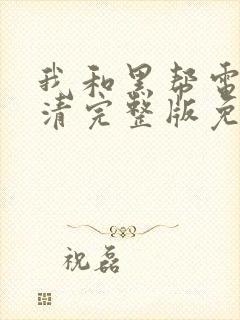 我和黑帮电
清完整版免
祝磊